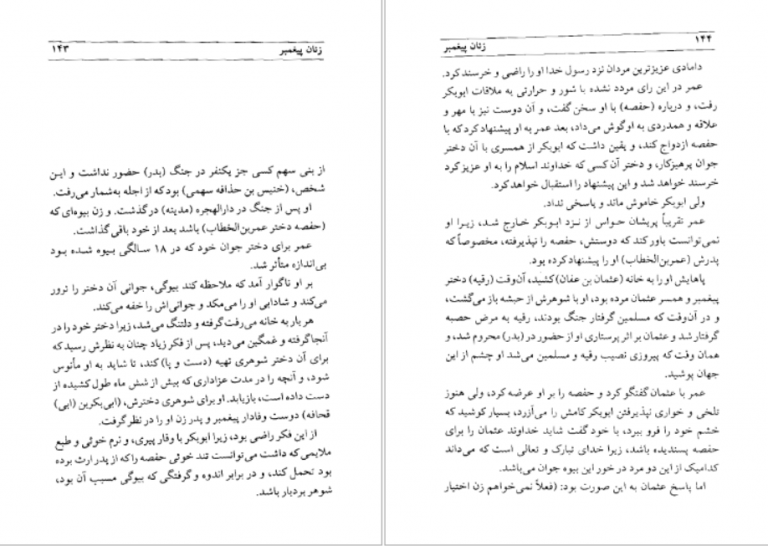 زنان پیغمبر ۱۴۳
از بنی سهم کسی جز یکنفر در جنگ (بدر) حضور نداشت و این
شخص، (خنیس بن حذافه سهمی) بود که از اجله به‌شمار می‌رفت.
او پس از جنگ در دارالهجره (مدینه) درگذشت. و زن بیوه‌ای که
(حفصه دختر عمربن‌الخطاب) باشد بعد از خود باقی گذاشت.
عمر برای دختر جوان خود که در ۱۸ سالگی بیوه شده بود
بی‌اندازه متأثر شد.
بر او ناگوار آمد که ملاحظه کند بیوگی، جوانی آن دختر را ترور
می‌کند و شادابی او را می‌مکد و جوانی‌اش را خفه می‌کند.
هر بار به خانه می‌رفت گرفته و دلتنگ می‌شد، زیرا دختر خود را در
آنجا گرفته و غمگین می‌دید، پس از فکر زیاد چنان به نظرش رسید که
برای آن دختر شوهری تهیه (دست و پا) کند، تا شاید به او مأنوس
شود، و آنچه را در مدت عزاداری که بیش از شش ماه طول کشیده از
دست داده است، بازیابد. او برای شوهری دخترش، (ابی‌بکربن (ابی)
قحافه) دوست وفادار پیغمبر و پدر زن او را در نظر گرفت.
از این فکر راضی بود، زیرا ابوبکر با وقار پیری، و نرم خوئی و طبع
ملایمی که داشت می‌توانست تند خوئی حفصه را که از پدر ارث برده
بود تحمل کند، و در برابر اندوه و گرفتگی که بیوگی مسبب آن بود،
شوهر بردبار باشد.
۱۴۴ زنان پیغمبر
دامادی عزیزترین مردان نزد رسول خدا او را راضی و خرسند کرد.
عمر در این رای مردد نشده با شور و حرارتی به ملاقات ابوبکر
رفت، و درباره (حفصه) با او سخن گفت، و آن دوست نیز با مهر و
علاقه و همدردی به او گوش می‌داد، بعد عمر به او پیشنهاد کرد که با
حفصه ازدواج کند، و یقین داشت که ابوبکر از همسری با آن دختر
جوان پرهیزکار، و دختر آن کسی که خداوند اسلام را به او عزیز کرد
خرسند خواهد شد و این پیشنهاد را استقبال خواهد کرد.
ولی ابوبکر خاموش ماند و پاسخی نداد.
عمر تقریباً پریشان حواس از نزد ابوبکر خارج شد، زیرا او
نمی‌توانست باور کند که دوستش، حفصه را نپذیرفته، مخصوصاً که
پدرش (عمربن‌الخطاب) او را پیشنهاد کرده بود.
پاهایش او را به خانه (عثمان بن عفان) کشید، آن‌وقت (رقیه) دختر
پیغمبر و همسر عثمان مرده بود، او با شوهرش از حبشه باز می‌گشت،
و در آن‌وقت که مسلمین گرفتار جنگ بودند، رقیه به مرض حصبه
گرفتار شد و عثمان بر اثر پرستاری او از حضور در (بدر) محروم شد، و
همان وقت که پیروزی نصیب رقیه و مسلمین می‌شد او چشم از این
جهان پوشید.
عمر با عثمان گفتگو کرد و حفصه را بر او عرضه کرد، ولی هنوز
تلخی و خواری نپذیرفتن ابوبکر کامش را می‌آزرد، بسیار کوشید که
خشم خود را فرو ببرد، با خود گفت شاید خداوند عثمان را برای
حفصه پسندیده باشد، زیرا خدای تبارک و تعالی است که می‌داند
کدامیک از این دو مرد در خور این بیوه جوان می‌باشد.
اما پاسخ عثمان به این صورت بود: (فعلاً نمی‌خواهم زن اختیار